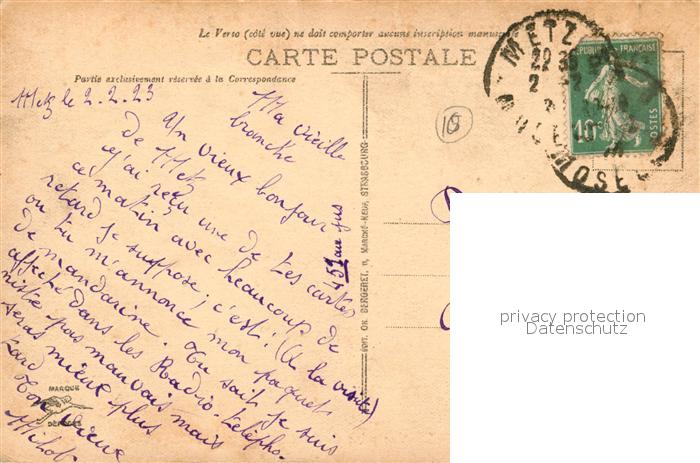 Le Verso (côté vue) ne doit comporter aucune inscription manus
CARTE POSTALE
Partie exclusivement réservée à la Correspondance
Metz le 2.2.23
Ma vieille
branche
Un vieux bonjour
de Metz
j'ai reçu une de tes cartes
ce matin avec beaucoup de
retard je suppose, c'est! (A la visite)
ou tu m'annonce mon paquet
de mandarine. Tu sait je suis
affecté dans les Radio-télépho-
niste pas mauvais mais
seras mieux plus
tard
Ton vieux
451 au jus
MARQUE
DÉPOSÉE
CH. BERGERET, MARCHÉ-NEUF, STRASBOURG
18
METZ
MOSELLE
RÉPUBLIQUE FRANÇAISE
10c
POSTES
privacy protection
Datenschutz